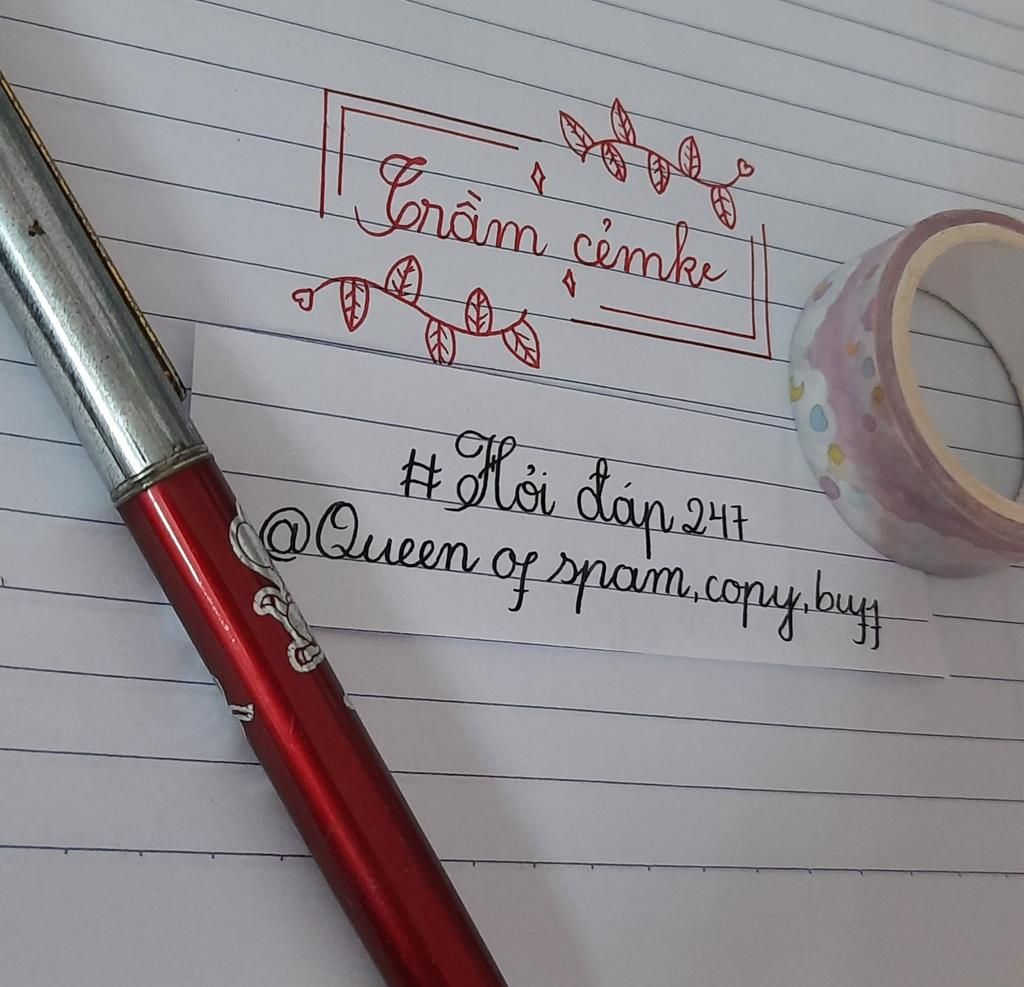 Trầm cảmke
#Hỏi đáp 247
@Queen of spam,copy,buff